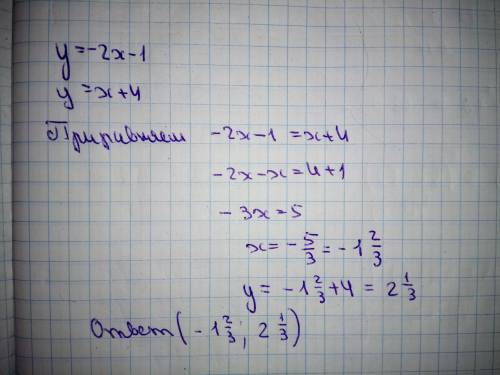 y = -2x - 1
y = x + 4
Приравняем -2x - 1 = x + 4
-2x - x = 4 + 1
- 3x = 5
x = - 5/3 = - 1 2/3
y = - 1 2/3 + 4 = 2 1/3
Ответ (- 1 2/3 ; 2 1/3)